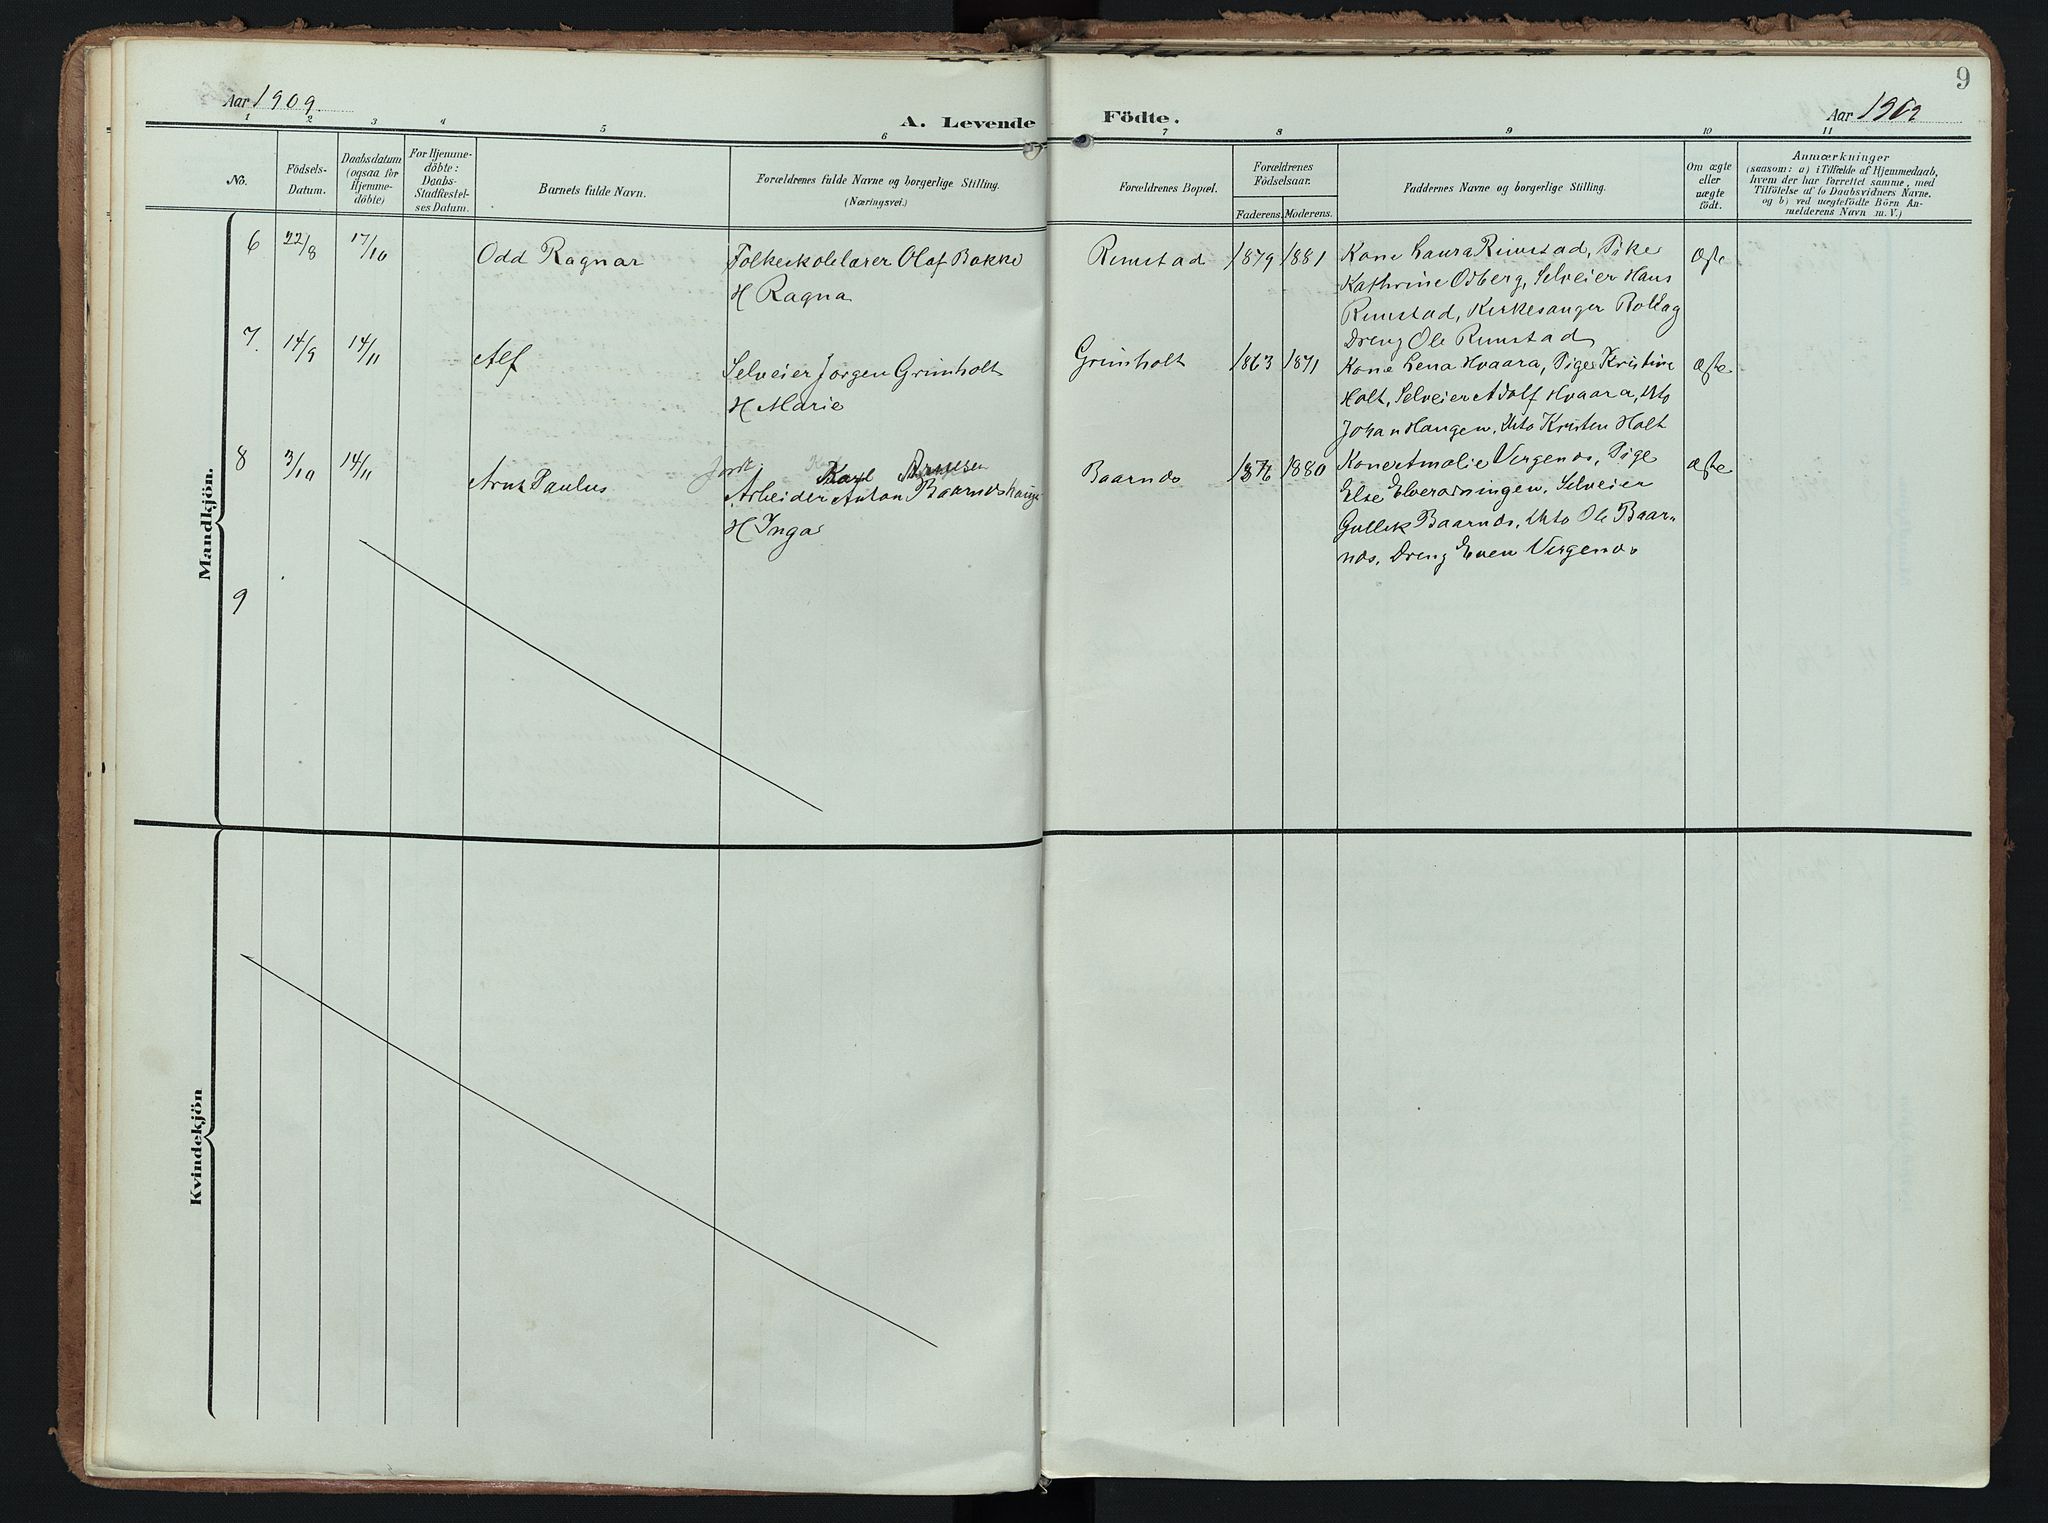 9
Aar 1909.
A. Levende Födte.
Aar 1909
1 2 3 4 5 6 7 8 9 10 11
No.
Födsels-
Datum.
Daabsdatum
(ogsaa for
Hjemme-
döbte)
For Hjemme-
döbte:
Daabs-
Stadfæstel-
ses Datum.
Barnets fulde Navn.
Forældrenes fulde Navne og borgerlige Stilling.
(Næringsvei.)
Forældrenes Bopæl.
Forældrenes
Födselsaar.
Faderens. Moderens.
Faddernes Navne og borgerlige Stilling.
Om ægte
eller
uægte
födt.
Anmærkninger
(saasom: a) i Tilfælde af Hjemmedaab,
hvem der har forrettet samme, med
Tilföielse af to Daabsvidners Navne.
og b) ved uægtefödte Börn An-
melderens Navn m. V.)
Mandkjön.
6 22/8 17/10 Odd Ragnar Folkeskolelærer Olaf Bakke Rimstad 1879 1881 Kone Laura Rimstad, Pike Ægte
H Ragna Kathrine Odberg, Selveier Hans
Rimstad, Kirkesanger Rollag
Dreng Ole Rimstad
7. 14/9 14/11 Alf Selveier Jørgen Grimholt Grimholt 1863 1871 Kone Lena Hvaara, Pige Kristine Ægte
H Marie Holt, Selveier Adolf Hvaara, Dito
Johan Haugen, Dito Kristen Holt
8 3/10 14/11 Arne Paulus Karl
Arbeider Anton Baarnds Baarnds 1880 Kone Amalie Virgenes, Pige Ægte
H Inga Else Selveier
Gullik Baarnds, Dito Ole Baar-
nds, Dreng Even Virgenes
9
Kvindekjön